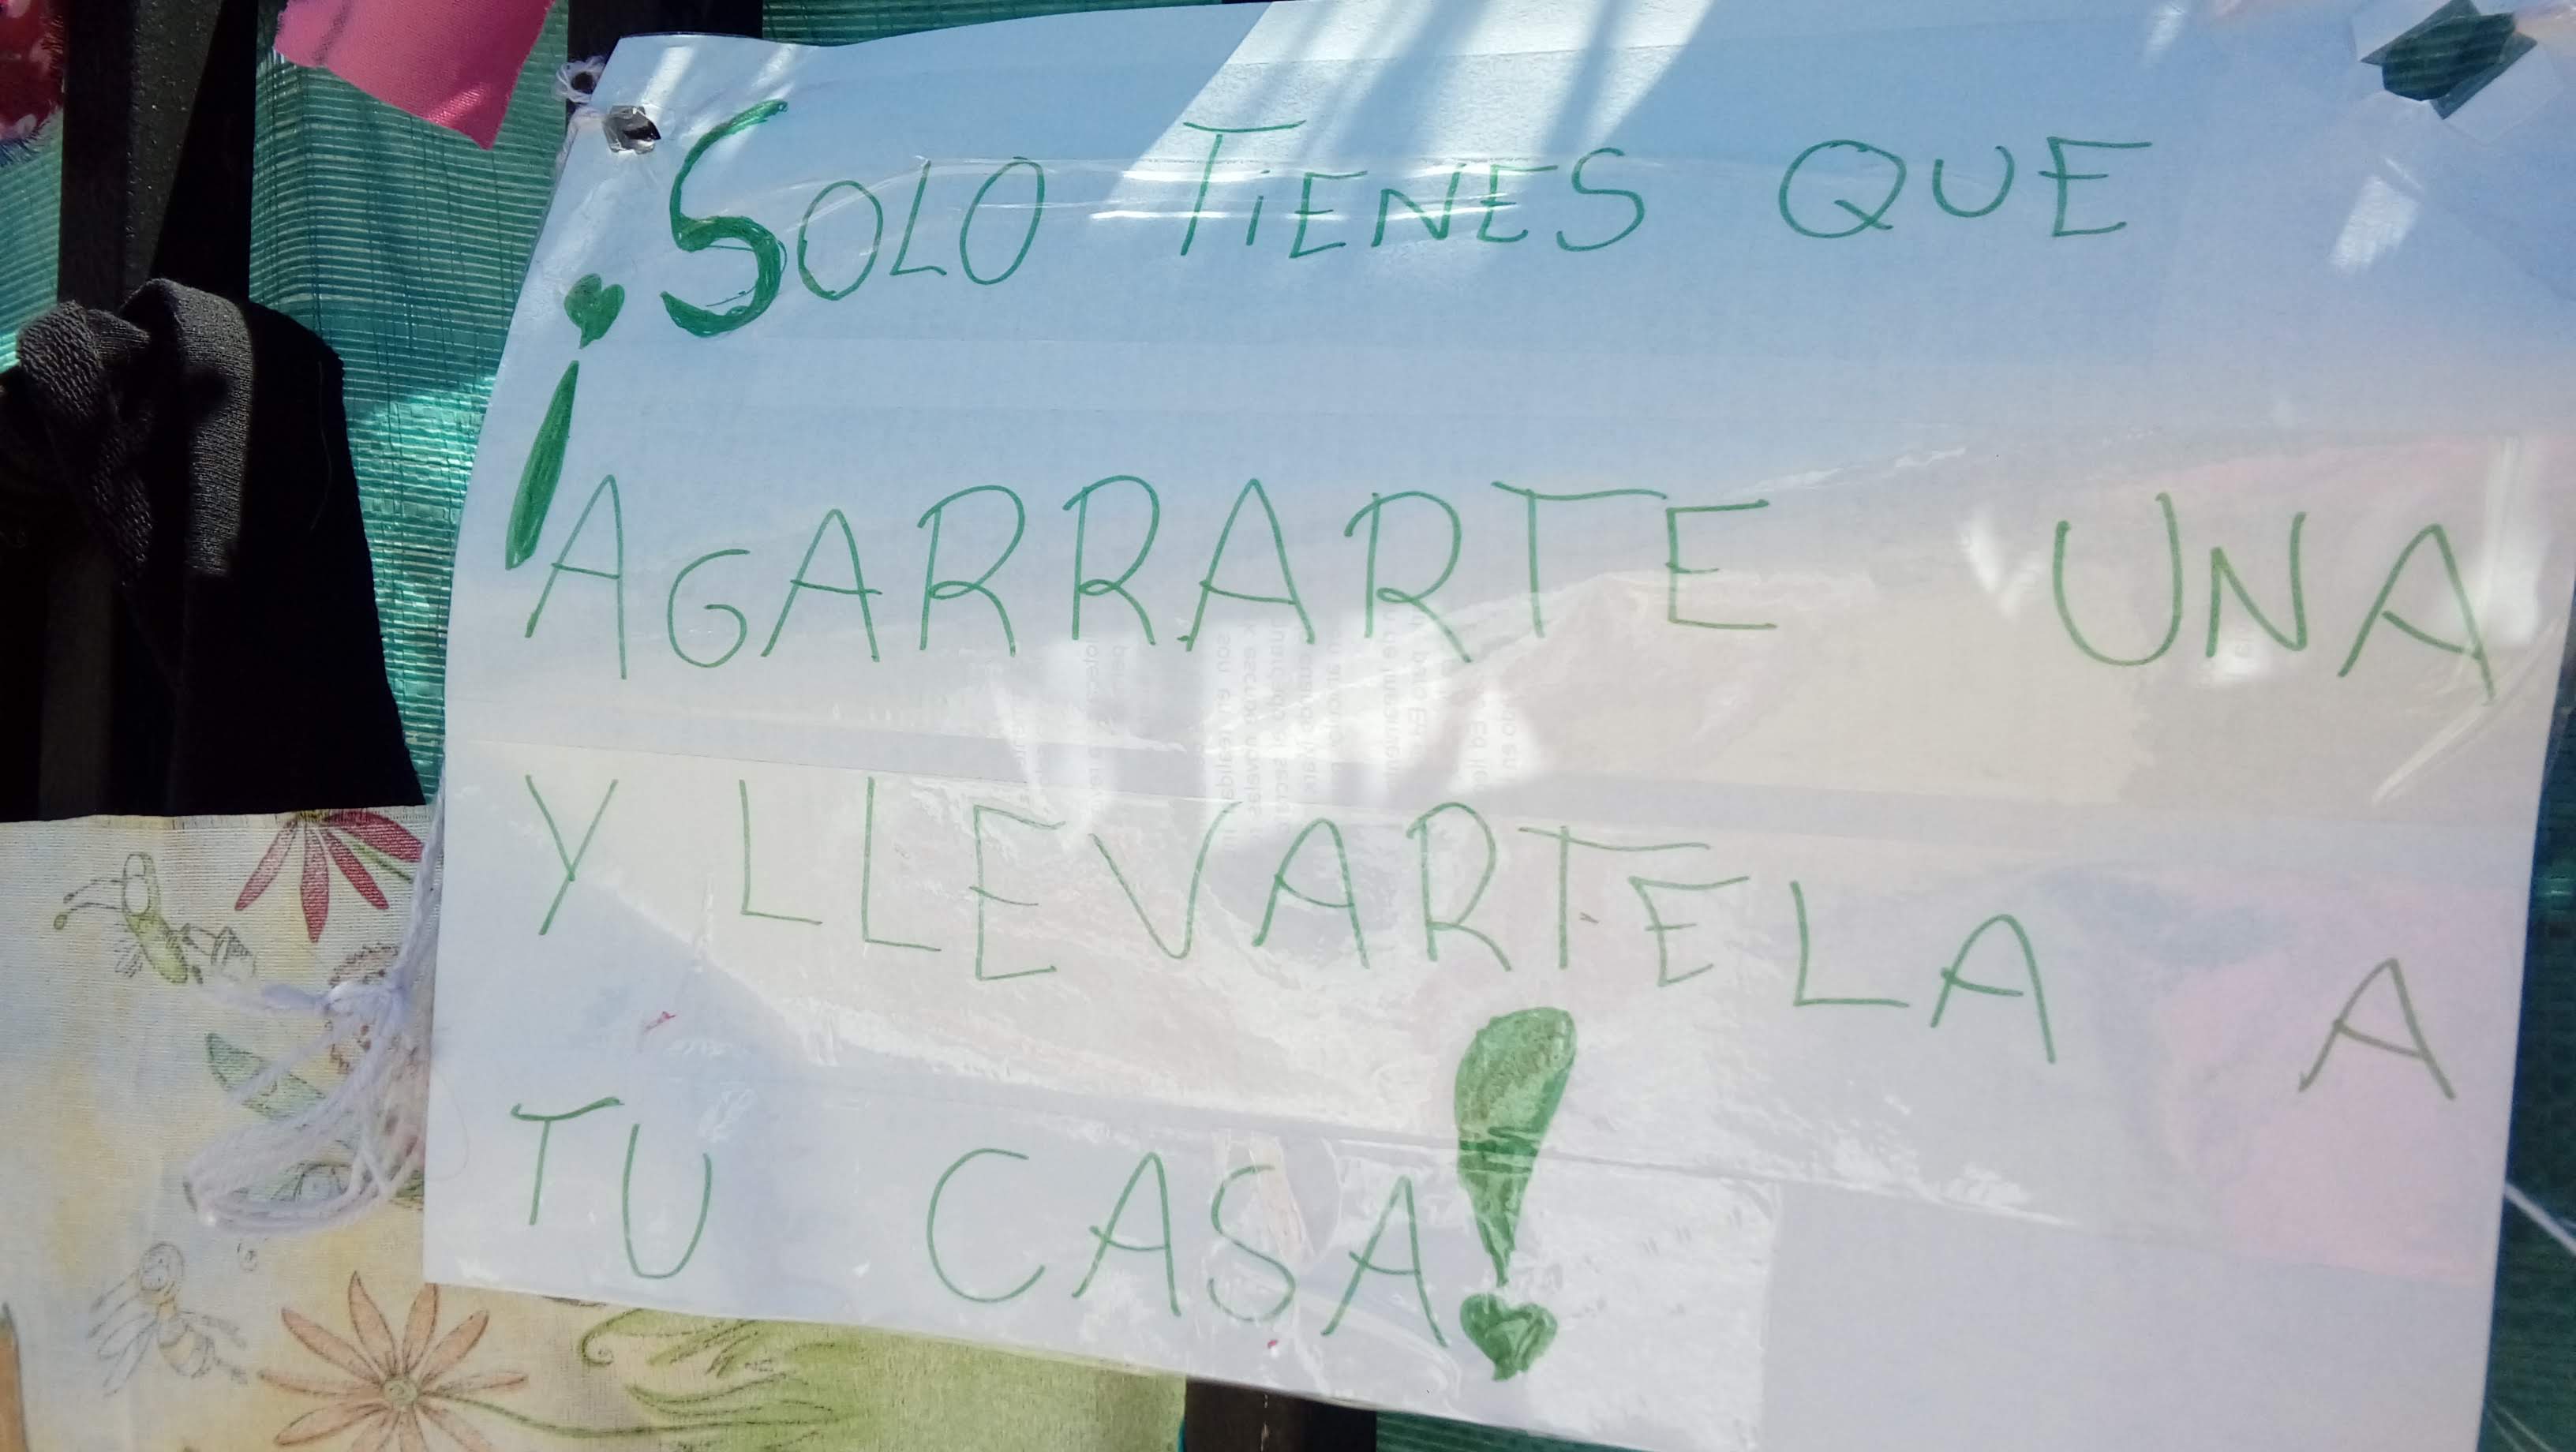 ¡SOLO TIENES QUE
AGARRARTE UNA
Y LLEVARTELA A
TU CASA!